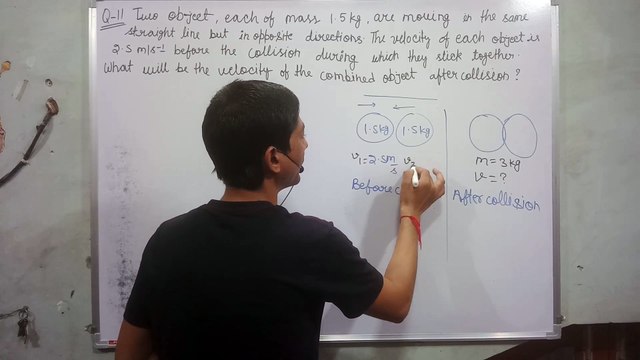 Q-11 Two object, each of mass 1.5 kg, are moving in the same
straight line but in opposite directions. The velocity of each object is
2.5 m/s⁻¹ before the collision during which they stick together.
What will be the velocity of the combined object after collision?
1.5kg 1.5kg
v₁=2.5m/s v₂
m=3kg
v=?
Before
After collision